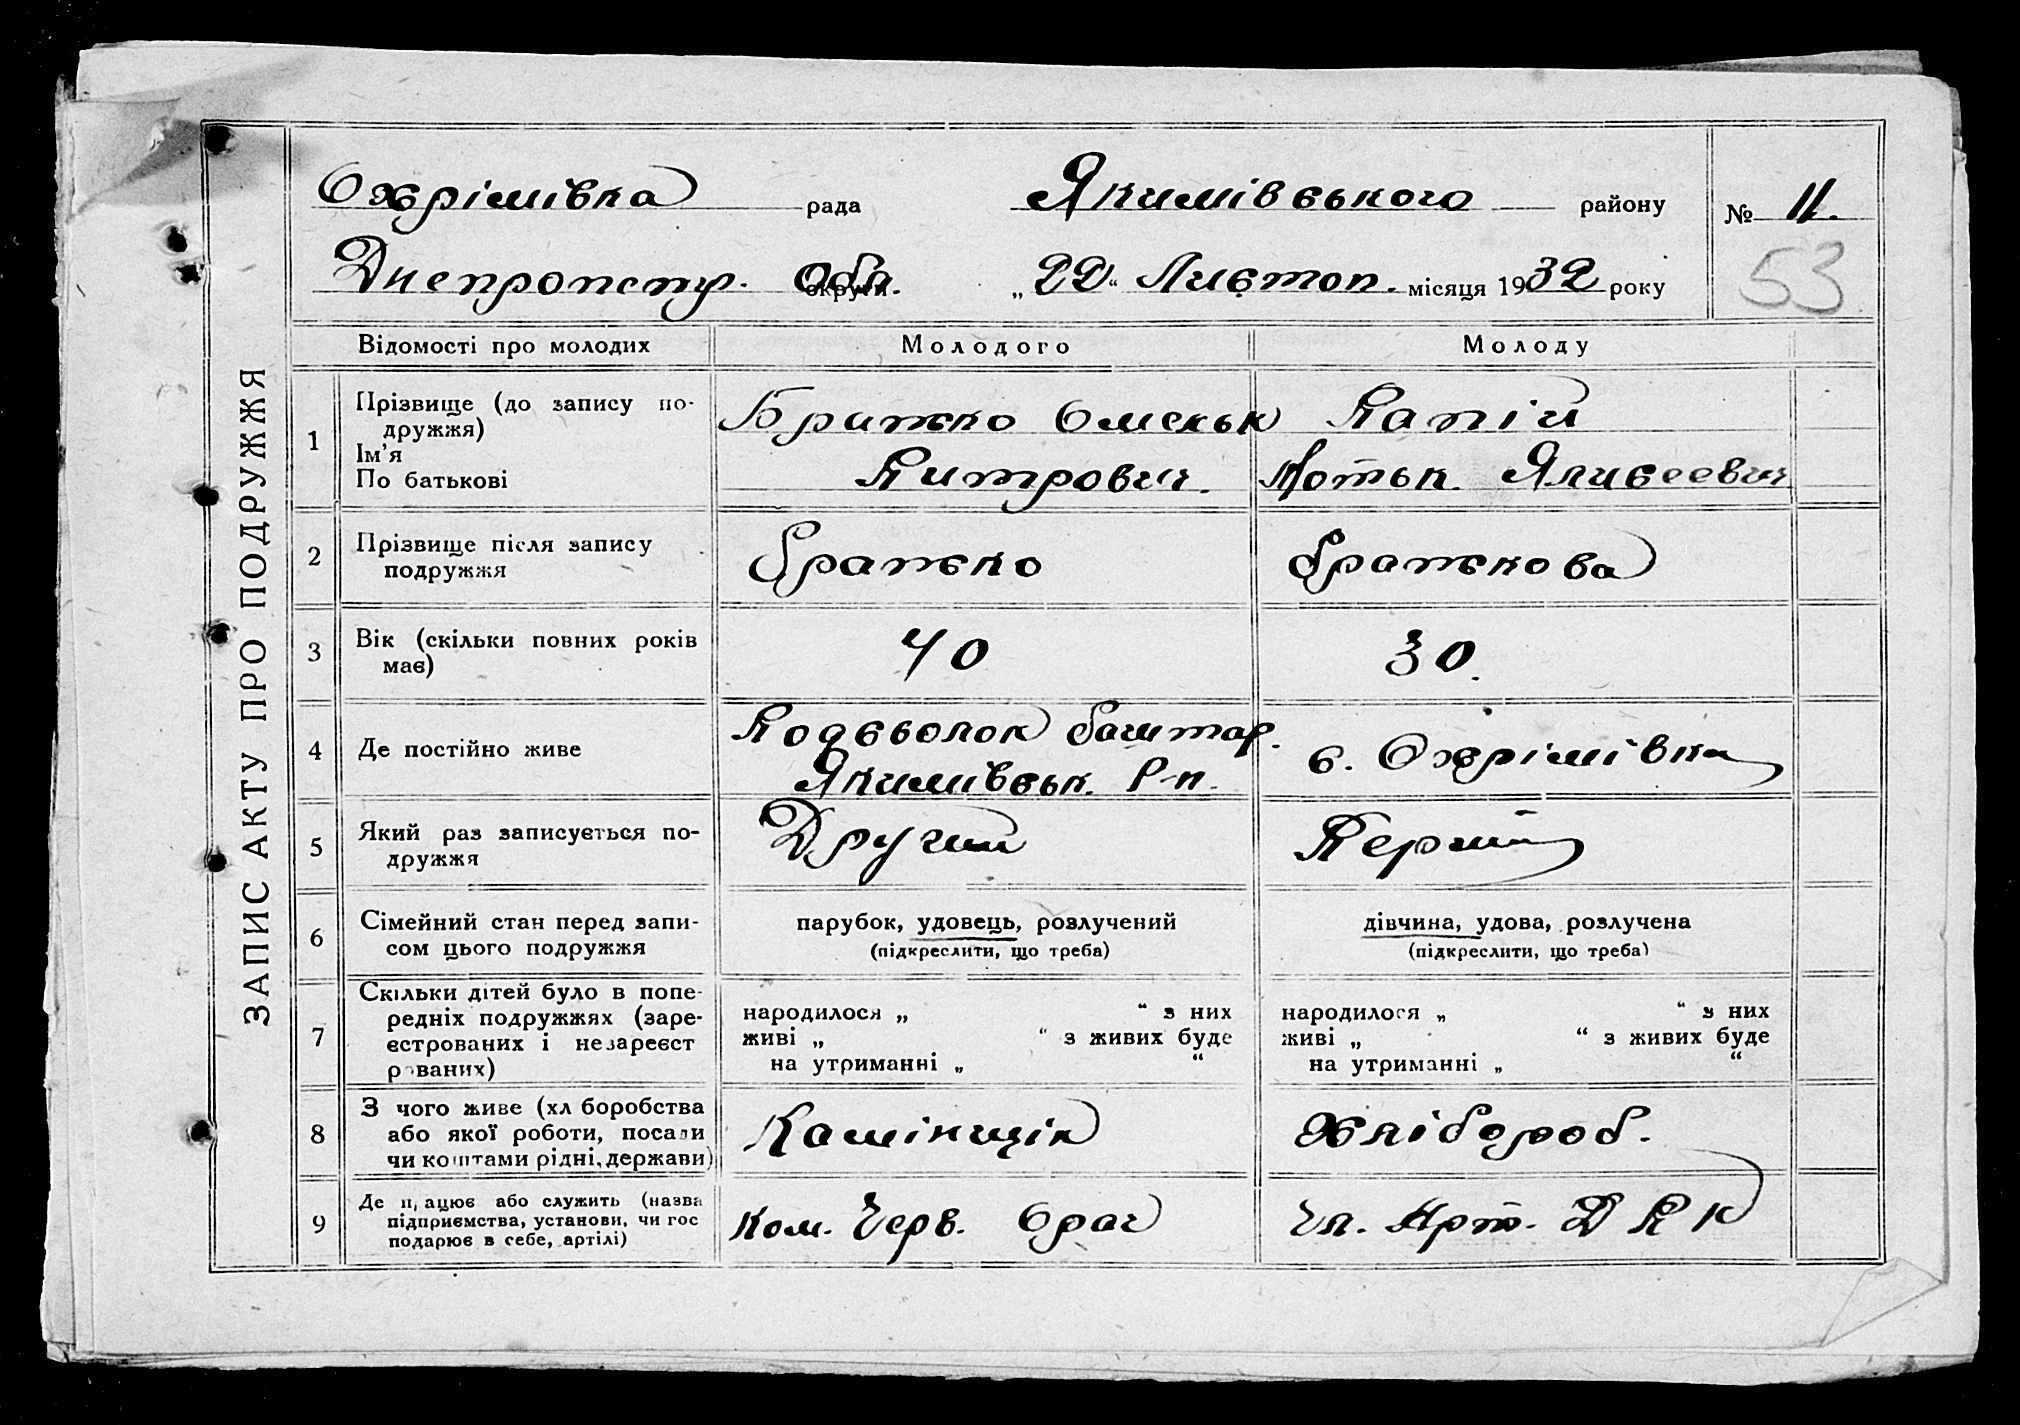 ЗАПИС АКТУ ПРО ПОДРУЖЖЯ
Охрімівка рада Якимівського району № 11.
Днепропетр. Обл. округи „22“ Листоп. місяця 1932 року 53
Відомості про молодих Молодого Молоду
1 Прізвище (до запису по-
дружжя)
Ім’я
По батькові
Брижко Омельк
Питрович.
Папій
Мотьк.
2 Прізвище після запису
подружжя
Бражко
Бражкова
3 Вік (скільки повних років
має)
40
30.
4 Де постійно живе
Баштар.
Якимівськ. Р-н.
с. Охрімівка
5 Який раз записується по-
дружжя
Другий
Перший
6 Сімейний стан перед запи-
сом цього подружжя
парубок, удовець, розлучений
(підкреслити, що треба)
дівчина, удова, розлучена
(підкреслити, що треба)
7 Скільки дітей було в попе-
редніх подружжях (заре-
єстрованих і незареєст
рованих)
народилося „ “ з них
живі „ “ з живих буде
на утриманні „ “
народилося „ “ з них
живі „ “ з живих буде
на утриманні „ “
8 З чого живе (хл боробства
або якої роботи, посади
чи коштами рідні, держави)
Камінщік
Хлібороб.
9 Де працює або служить (назва
підприємства, установи, чи гос
подарює в себе, артілі)
Ком. Черв. Орач
Чл. Арт. Д П К